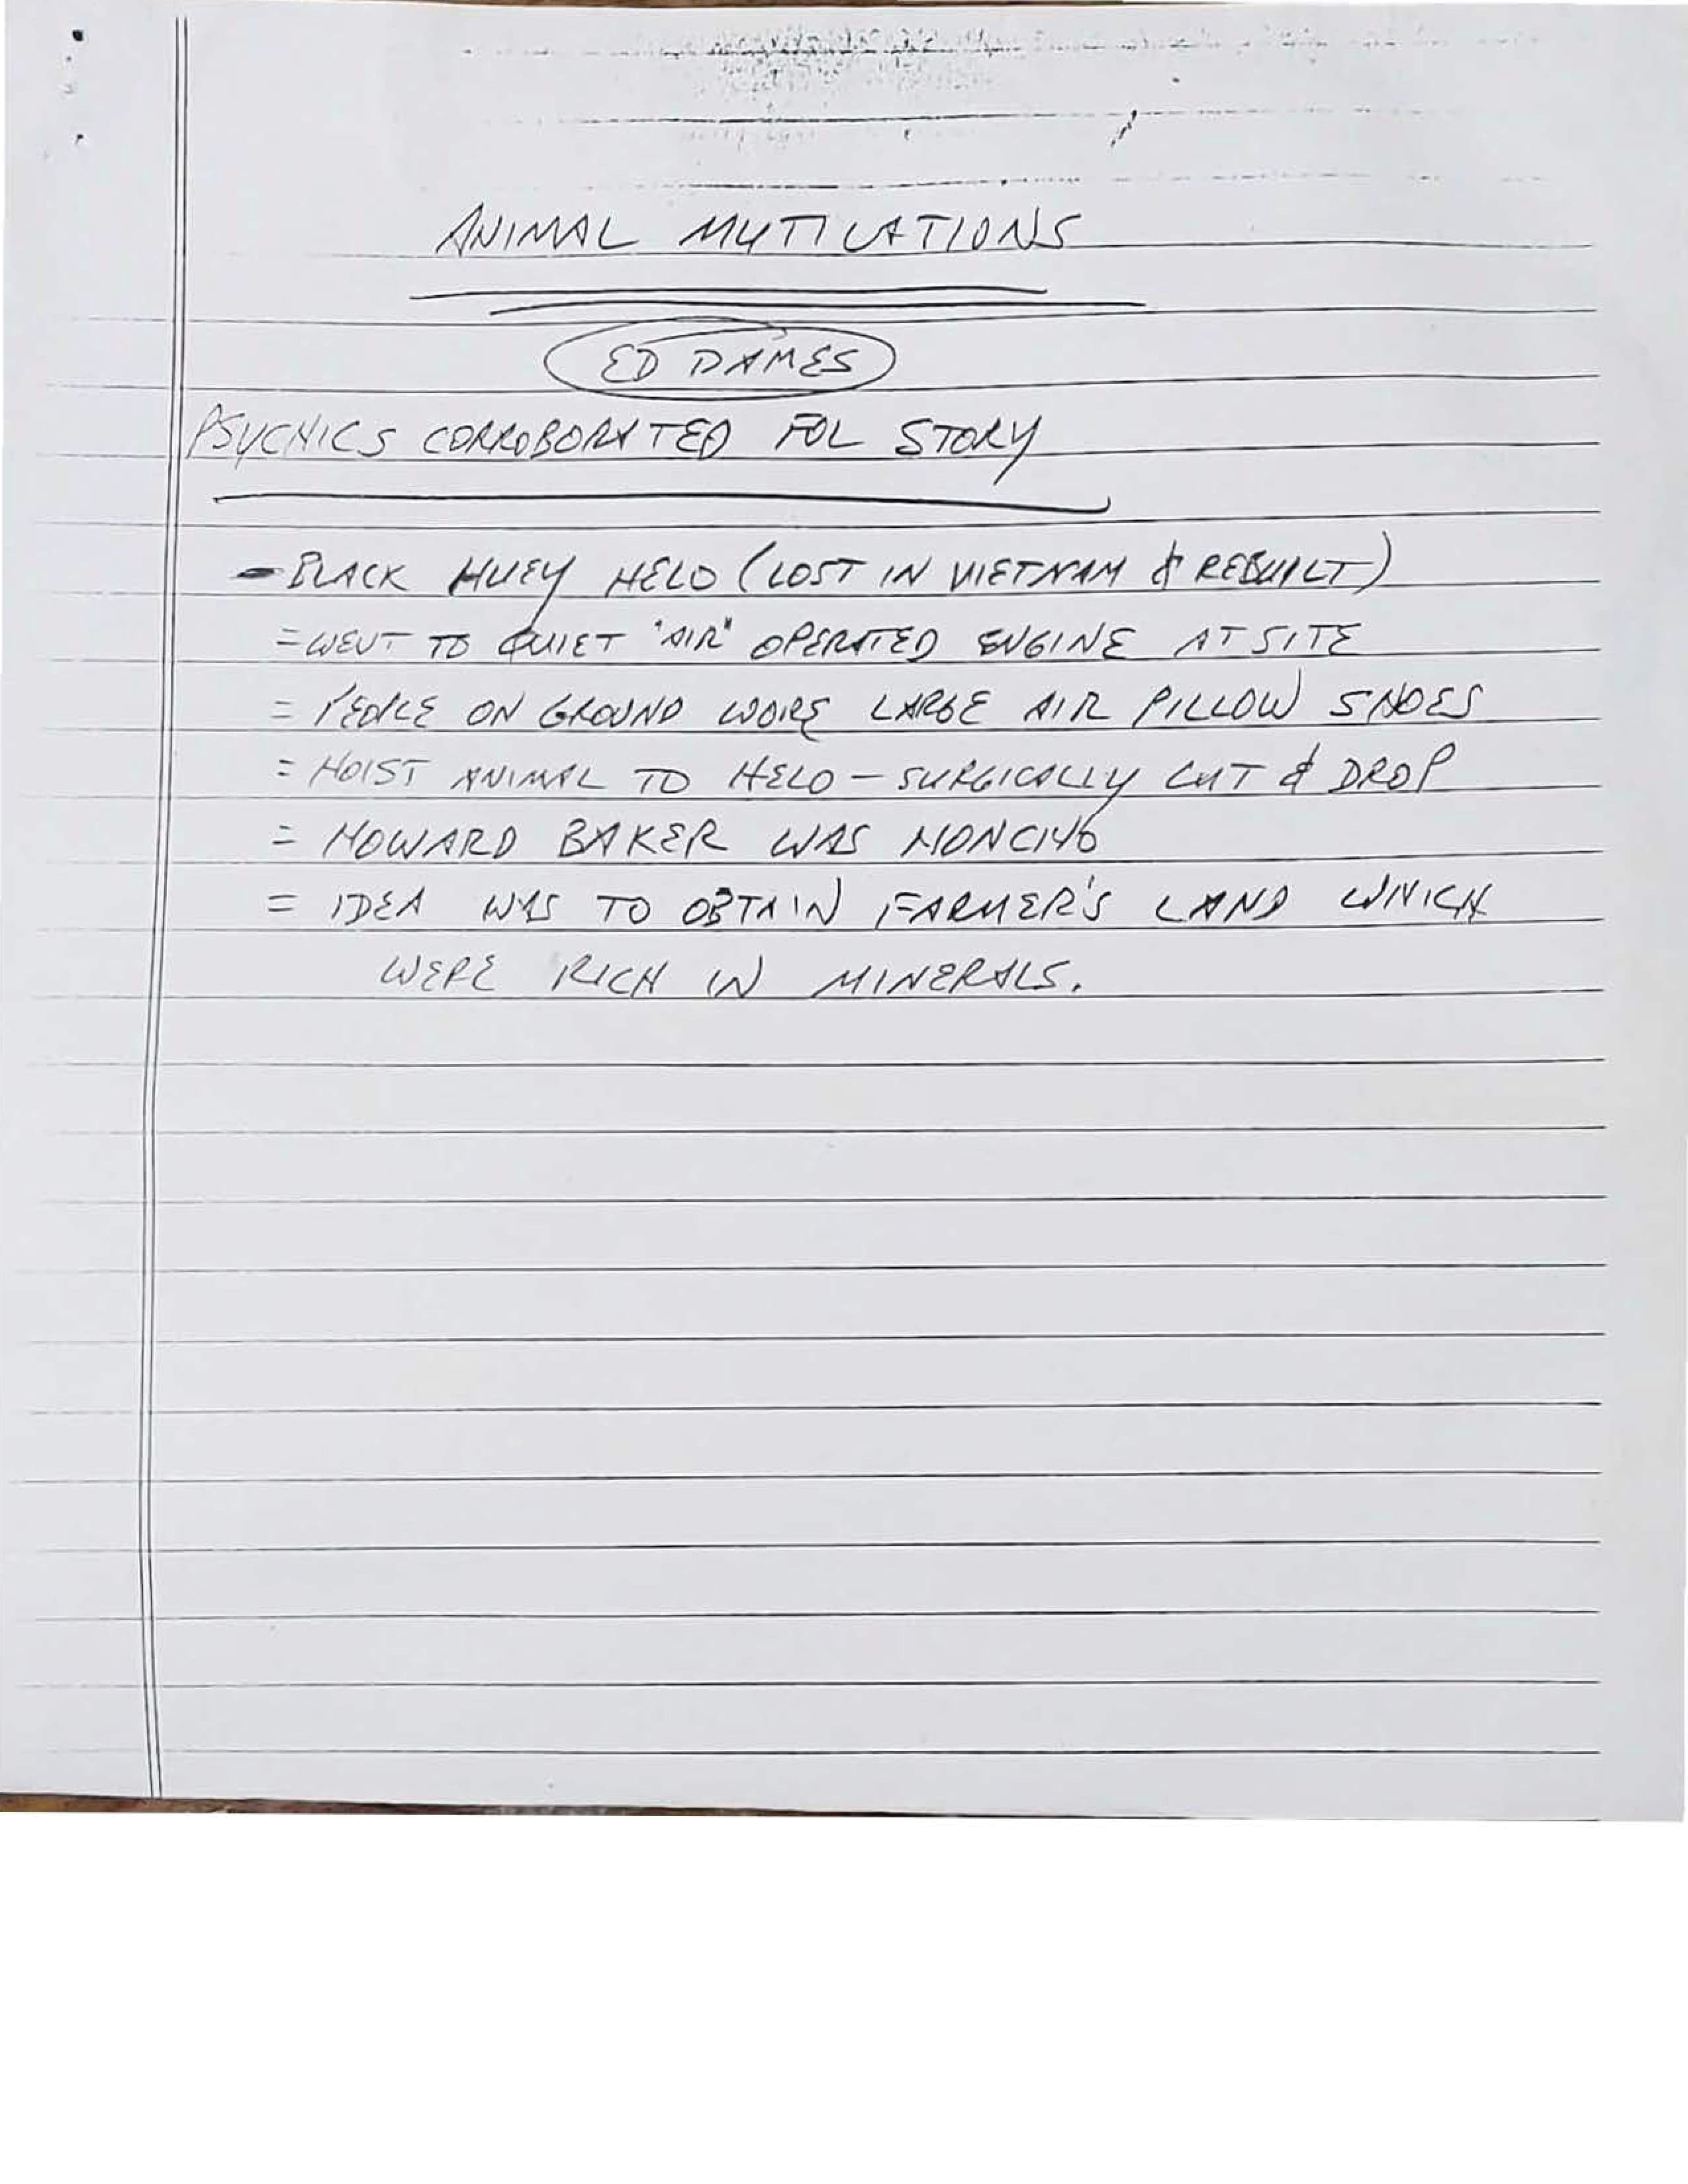 ANIMAL MUTILATIONS
ED DAMES
PSYCHICS CORROBORATED FOL STORY
- BLACK HUEY HELO (LOST IN VIETNAM & REBUILT)
= WENT TO QUIET "AIR" OPERATED ENGINE AT SITE
= PEOPLE ON GROUND WORE LARGE AIR PILLOW SHOES
= HOIST ANIMAL TO HELO - SURGICALLY CUT & DROP
= HOWARD BAKER WAS HONCHO
= IDEA WAS TO OBTAIN FARMER'S LAND WHICH
WERE RICH IN MINERALS.